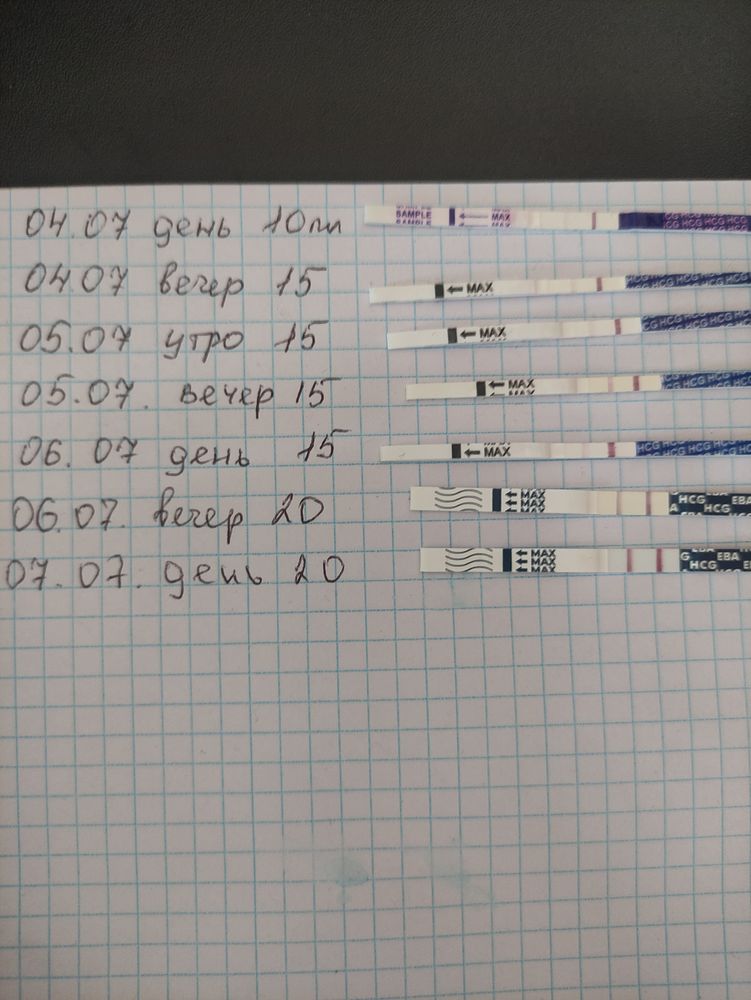 04.07 день 10мл
SAMPLE MAX HCG HCG HCG
04.07 вечер 15
MAX HCG HCG HCG
05.07 утро 15
MAX HCG HCG HCG
05.07. вечер 15
MAX HCG HCG HCG
06.07 день 15
MAX HCG HCG HCG
06.07. вечер 20
MAX MAX MAX HCG EBA HCG
07.07. день 20
MAX MAX MAX EBA HCG